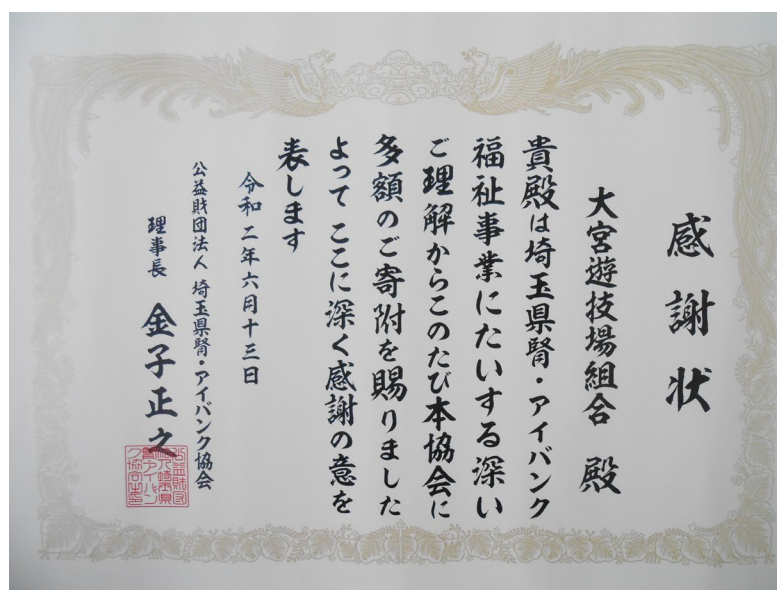 感謝状
大宮遊技場組合 殿
貴殿は埼玉県腎・アイバンク
福祉事業にたいする深い
ご理解からこのたび本協会に
多額のご寄附を賜りました
よって ここに深く感謝の意を
表します
令和二年六月十三日
公益財団法人 埼玉県腎・アイバンク協会
理事長 金子正之